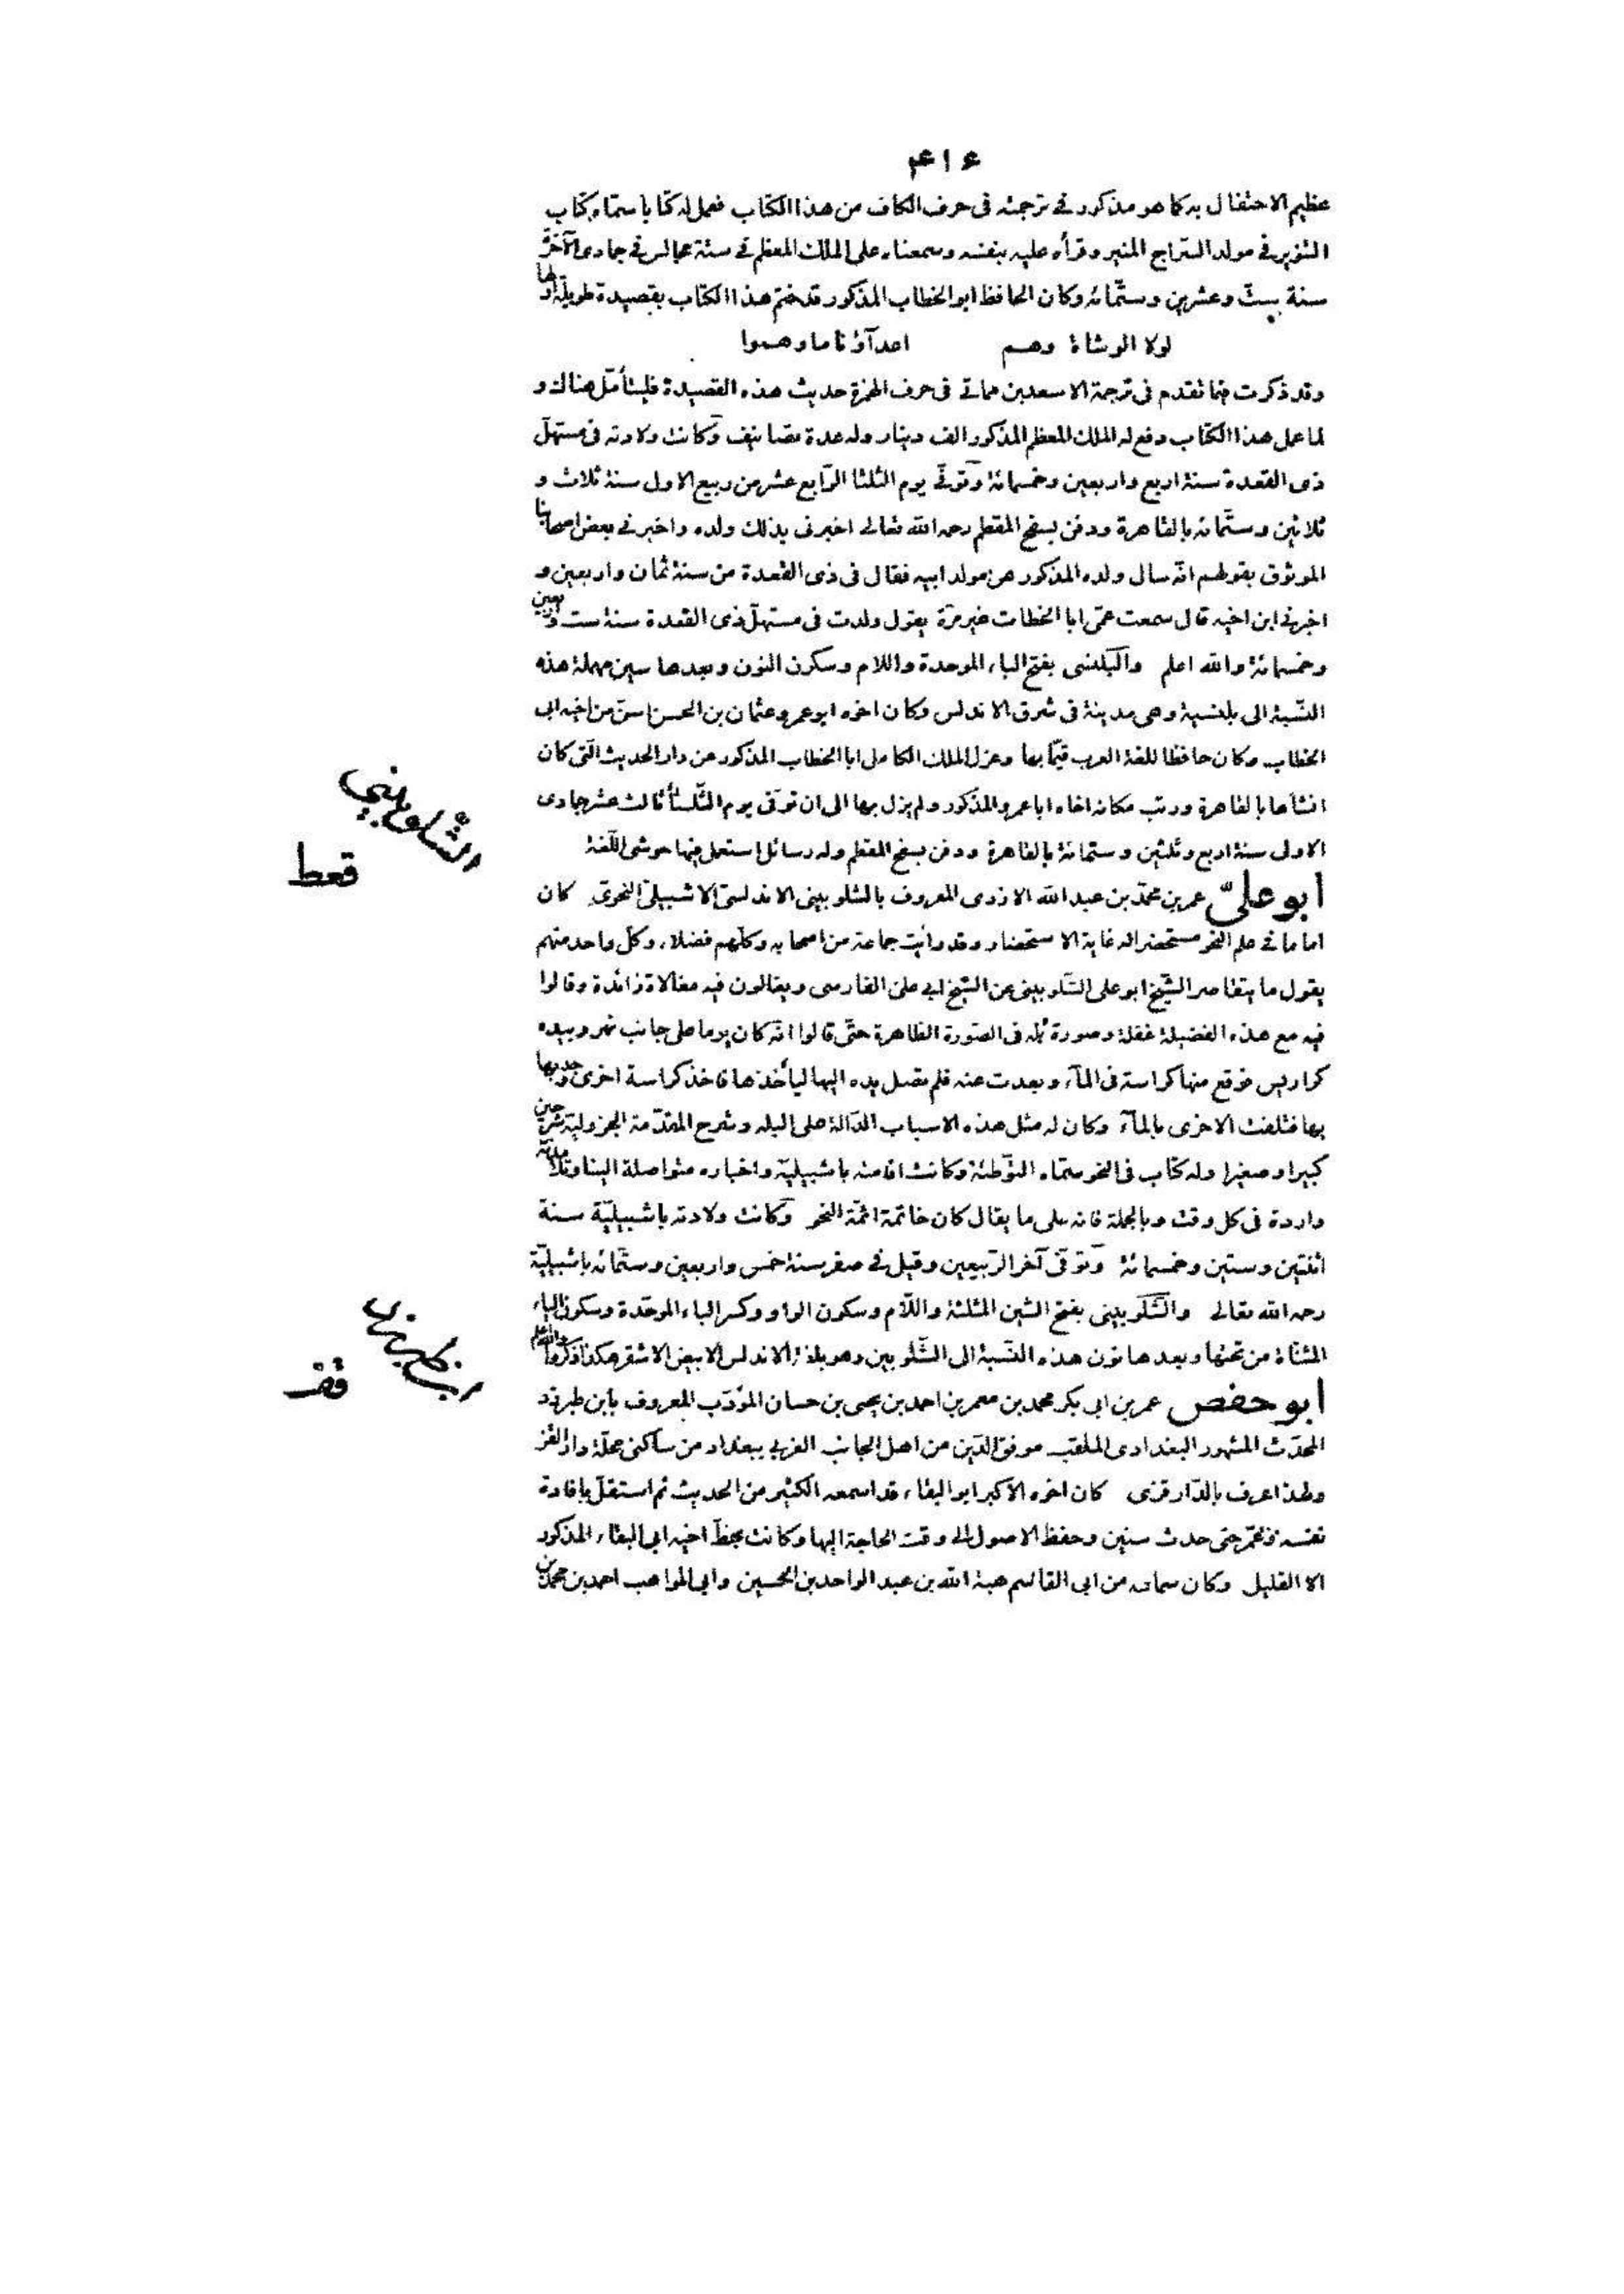 ٤١٤
عظيم الاحتفال به كما هو مذكور في ترجمته فى حرف الكاف من هذا الكتاب فعمل له كتابا سماه كتاب
التنوير في مولد السّراج المنير وقرأه عليه بنفسه وسمعناه على الملك المعظم في ستة مجالس في جمادى الآخرة
سنة ستّ وعشرين وستّمائه وكان الحافظ ابو الخطاب المذكور قد ختم هذا الكتاب بقصيدة طويلة اولها
لولا الوشاة وهم اعدآؤنا ما وهموا
وقد ذكرت فيما تقدم فى ترجمة الاسعد بن مماتي فى حرف الهمزة حديث هذه القصيدة فليتأمّل هناك و
لما عمل هذا الكتاب دفع له الملك المعظم المذكور الف دينار وله عدة تصانيف وكانت ولادته فى مستهلّ
ذى القعدة سنة اربع واربعين وخمسمائة وتوفّي يوم الثلثا الرّابع عشر من ربيع الاول سنة ثلاث و
ثلاثين وستّمائه بالقاهرة ودفن بسفح المقطم رحمه الله تعالى اخبرنى بذلك ولده واخبرني بعض اصحابنا
الموثوق بقولهم انّه سال ولده المذكور عن مولد ابيه فقال فى ذى القعدة من سنة ثمان واربعين و
اخبرني ابن اخيه قال سمعت عمّى ابا الخطاب غير مرّة يقول ولدت فى مستهلّ ذى القعدة سنة ست واربعين
وخمسمائة والله اعلم والبَلَنسى بفتح الباء الموحدة واللام وسكون النون وبعدها سين مهملة هذه
النّسبة الى بلنسية وهى مدينة فى شرق الاندلس وكان اخوه ابو عمرو عثمان بن الحسن اسنّ من اخيه ابى
الخطاب وكان حافظا للغة العرب قيّما بها وعزل الملك الكامل ابا الخطاب المذكور عن دار الحديث الّتى كان
انشأها بالقاهرة ورتب مكانه اخاه ابا عمرو المذكور ولم يزل بها الى ان توفّى يوم الثّلثأ ثالث عشر جمادى
الاولى سنة اربع وثلثين وستمائة بالقاهرة ودفن بسفح المقطم وله رسائل استعمل فيها حوشى اللّغة
ابو علىّ عمر بن محمّد بن عبد الله الازدى المعروف بالشلوبينى الاندلسىّ الاشبيلىّ النحوىّ كان
اماما في علم النحو مستحضرا له غاية الاستحضار وقد رأيت جماعة من اصحابه وكلّهم فضلاء وكلّ واحد منهم
يقول ما يتقاصر الشّيخ ابو على الشّلوبينى عن الشّيخ ابي على الفارسى ويغالون فيه مغالاة زائدة وقالوا
فيه مع هذه الفضيلة غفلة وصورة بله فى الصّورة الظاهرة حتّى قالوا انّه كان يوما على جانب نهر وبيده
كراريس فوقع منها كراسة فى المآء وبعدت عنه فلم تصل يده اليها ليأخذها فاخذ كراسة اخرى وجذبها
بها فتلفت الاخرى بالمآء وكان له مثل هذه الاسباب الدّالة على البله وشرح المقدّمة الجزولية شرحين
كبيرا وصغيرا وله كتاب فى النحو سمّاه التّوطئة وكانت اقامته باشبيليّة واخباره متواصلة الينا وتلامذته
واردة فى كل وقت وبالجملة فانه على ما يقال كان خاتمة ائمّة النحو وكانت ولادته باشبيليّة سنة
اثنتين وستين وخمسمائة وتوفّى آخر الرّبيعين وقيل في صفر سنة خمس واربعين وستّمائه باشبيليّة
رحمه الله تعالى والشَّلَوبينى بفتح الشين المثلثة واللّام وسكون الواو وكسر الباء الموحّدة وسكون الياء
المثنّاة من تحتها وبعدها نون هذه النّسبة الى الشّلوبين وهو بلغة الاندلس الابيض الاشقر هكذا ذكروا والله اعلم
ابو حفص عمر بن ابى بكر محمد بن معمر بن احمد بن يحيى بن حسان المؤدّب المعروف بابن طبرزد
المحدّث المشهور البغدادى الملقب موفق الدّين من اهل الجانب الغربي ببغداد من ساكنى محلّة دار القز
ولهذا عرف بالدّارقزى كان اخوه الاكبر ابو البقاء قد اسمعه الكثير من الحديث ثم استقلّ بافادة
نفسه وعمّر حتى حدث سنين وحفظ الاصول الى وقت الحاجة اليها وكانت بخطّ اخيه ابي البقاء المذكور
الا القليل وكان سماعه من ابى القاسم هبة الله بن عبد الواحد بن الحسين وابي المواهب احمد بن محمّد بن
الشلوبيني
قعط
ابن طبرزد